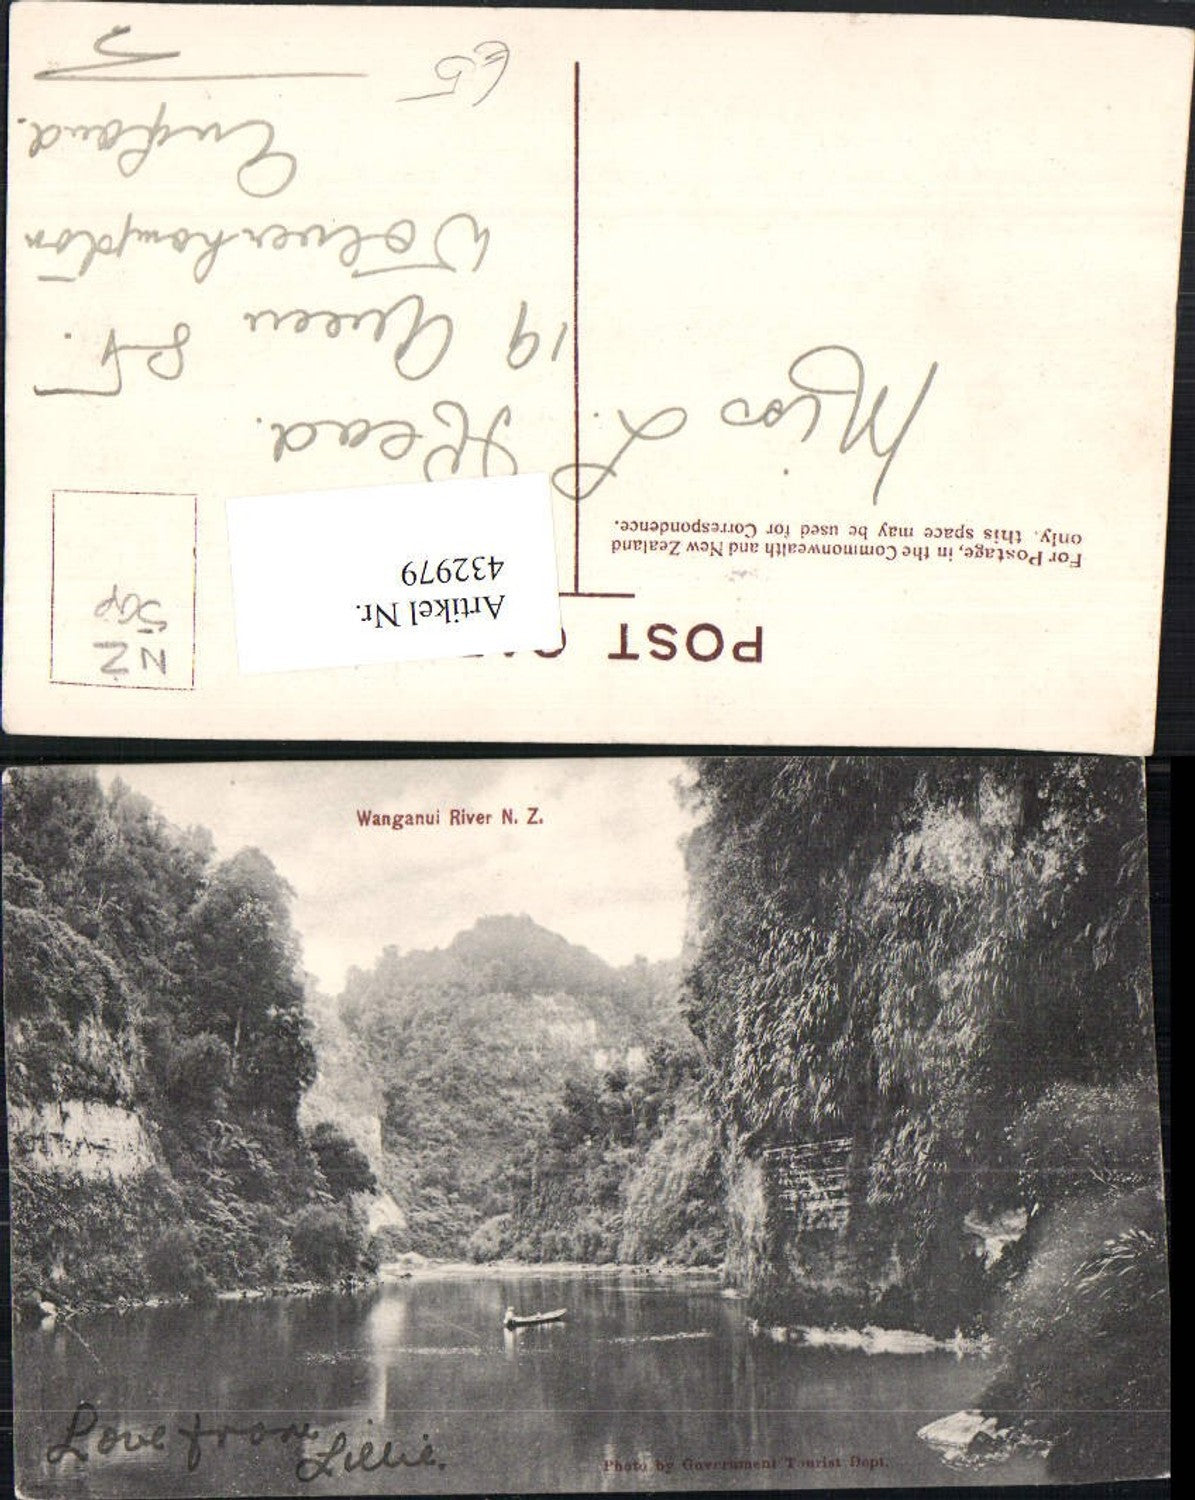 POST
For Postage, in the Commonwealth and New Zealand
only, this space may be used for Correspondence.
Artikel Nr.
432979
NZ
50p
Miss L. Read.
19 Queen St.
Wolverhampton
England.
£5
Wanganui River N. Z.
Love from
Lillie.
Photo by Government Tourist Dept.